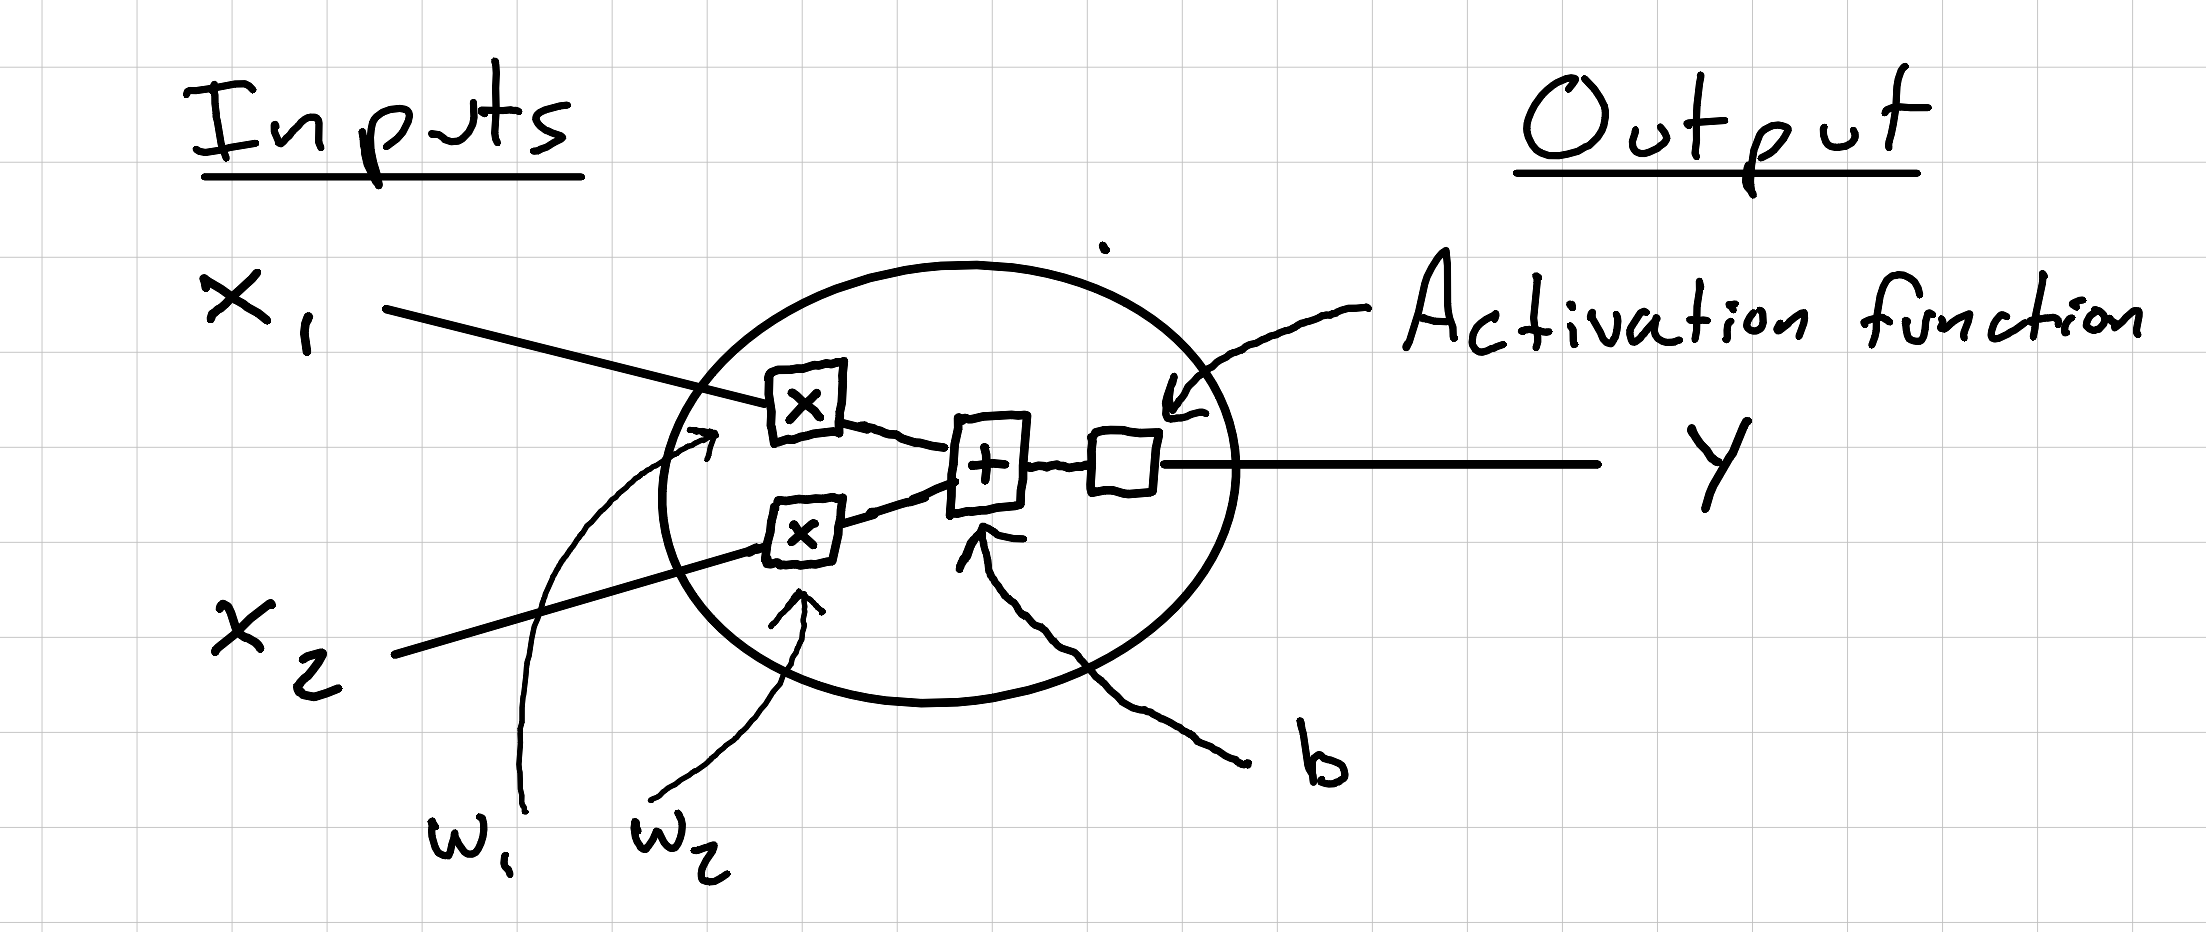 Inputs
Output
x1
Activation function
x
+
y
x
x2
b
w1
w2